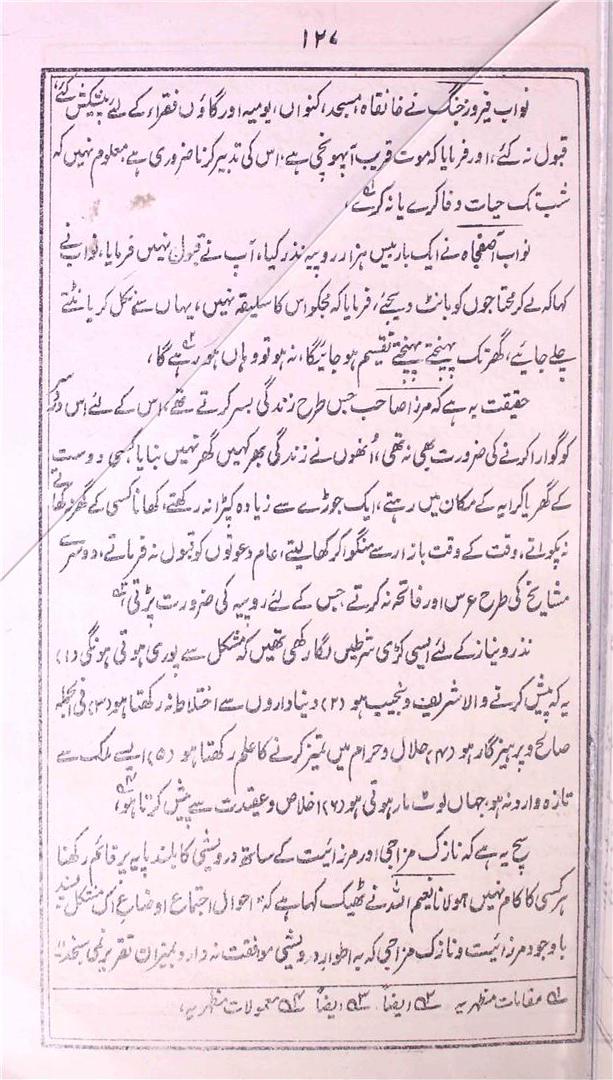 ۱۲۷
نواب فیروز جنگ نے خانقاہ، مسجد، کنواں، یومیہ اور گاؤں فقراء کے لئے پیشکش کئے،
قبول نہ کئے، اور فرمایا کہ موت قریب آپہونچی ہے، اس کی تدبیر کرنا ضروری ہے، معلوم نہیں کہ
شب تک حیات وفا کرے یا نہ کرے،
نواب آصفجاہ نے ایک بار بیس ہزار روپیہ نذر کیا، آپ نے قبول نہیں فرمایا، نواب نے
کہا کہ لے کر محتاجوں کو بانٹ دیجئے، فرمایا کہ مجکو اس کا سلیقہ نہیں، یہاں سے نکل کر بانٹتے
چلے جایئے، گھر تک پہنچتے پہنچتے تقسیم ہو جائیگا، نہ ہو تو وہاں ہو رہے گا،
حقیقت یہ ہے کہ مرزا صاحب جس طرح زندگی بسر کرتے تھے، اس کے لئے اس
کو گوارا کرنے کی ضرورت بھی نہ تھی، اُنھوں نے زندگی بھر کہیں گھر نہیں بنایا، کسی دوست
کے گھر یا کرایہ کے مکان میں رہتے، ایک جوڑے سے زیادہ کپڑا نہ رکھتے، کھانا کسی کے گھر کا نہ کھاتے
نہ پکواتے، وقت کے وقت بازار سے منگوا کر کھا لیتے، عام دعوتوں کو قبول نہ فرماتے، دوسرے
مشایخ کی طرح عرس اور فاتحہ نہ کرتے، جس کے لئے روپیہ کی ضرورت پڑتی،
نذر و نیاز کے لئے ایسی کڑی شرطیں لگا رکھی تھیں کہ مشکل سے پوری ہوتی ہونگی (۱)
یہ کہ پیش کرنے والا شریف و نجیب ہو (۲) دنیاداروں سے اختلاط نہ رکھتا ہو (۳) فی الجملہ
صالح و پرہیزگار ہو (۴) حلال و حرام میں تمیز کرنے کا علم رکھتا ہو (۵) ایسے ملک سے
تازہ وارد نہ ہو، جہاں لوٹ مار ہوتی ہو (۶) اخلاص و عقیدت سے پیش کرتا ہو،
سچ یہ ہے کہ نازک مزاجی اور مرزائیت کے ساتھ درویشی کا بلند پایہ پر قائم رکھنا
ہر کسی کا کام نہیں مولانا نعیم اللہ نے ٹھیک کہا ہے کہ "احوال اجتماع اوضاع آں متکل پسند
با وجود مرزائیت و نازک مزاجی کہ بہ اطوار درویشی موافقت نہ دارد بمیزان تقریر نمی سنجد"
لہ مقامات مظہریہ ۲ہ ایضاً ۳ہ ایضاً ۴ہ معمولات مظہریہ،